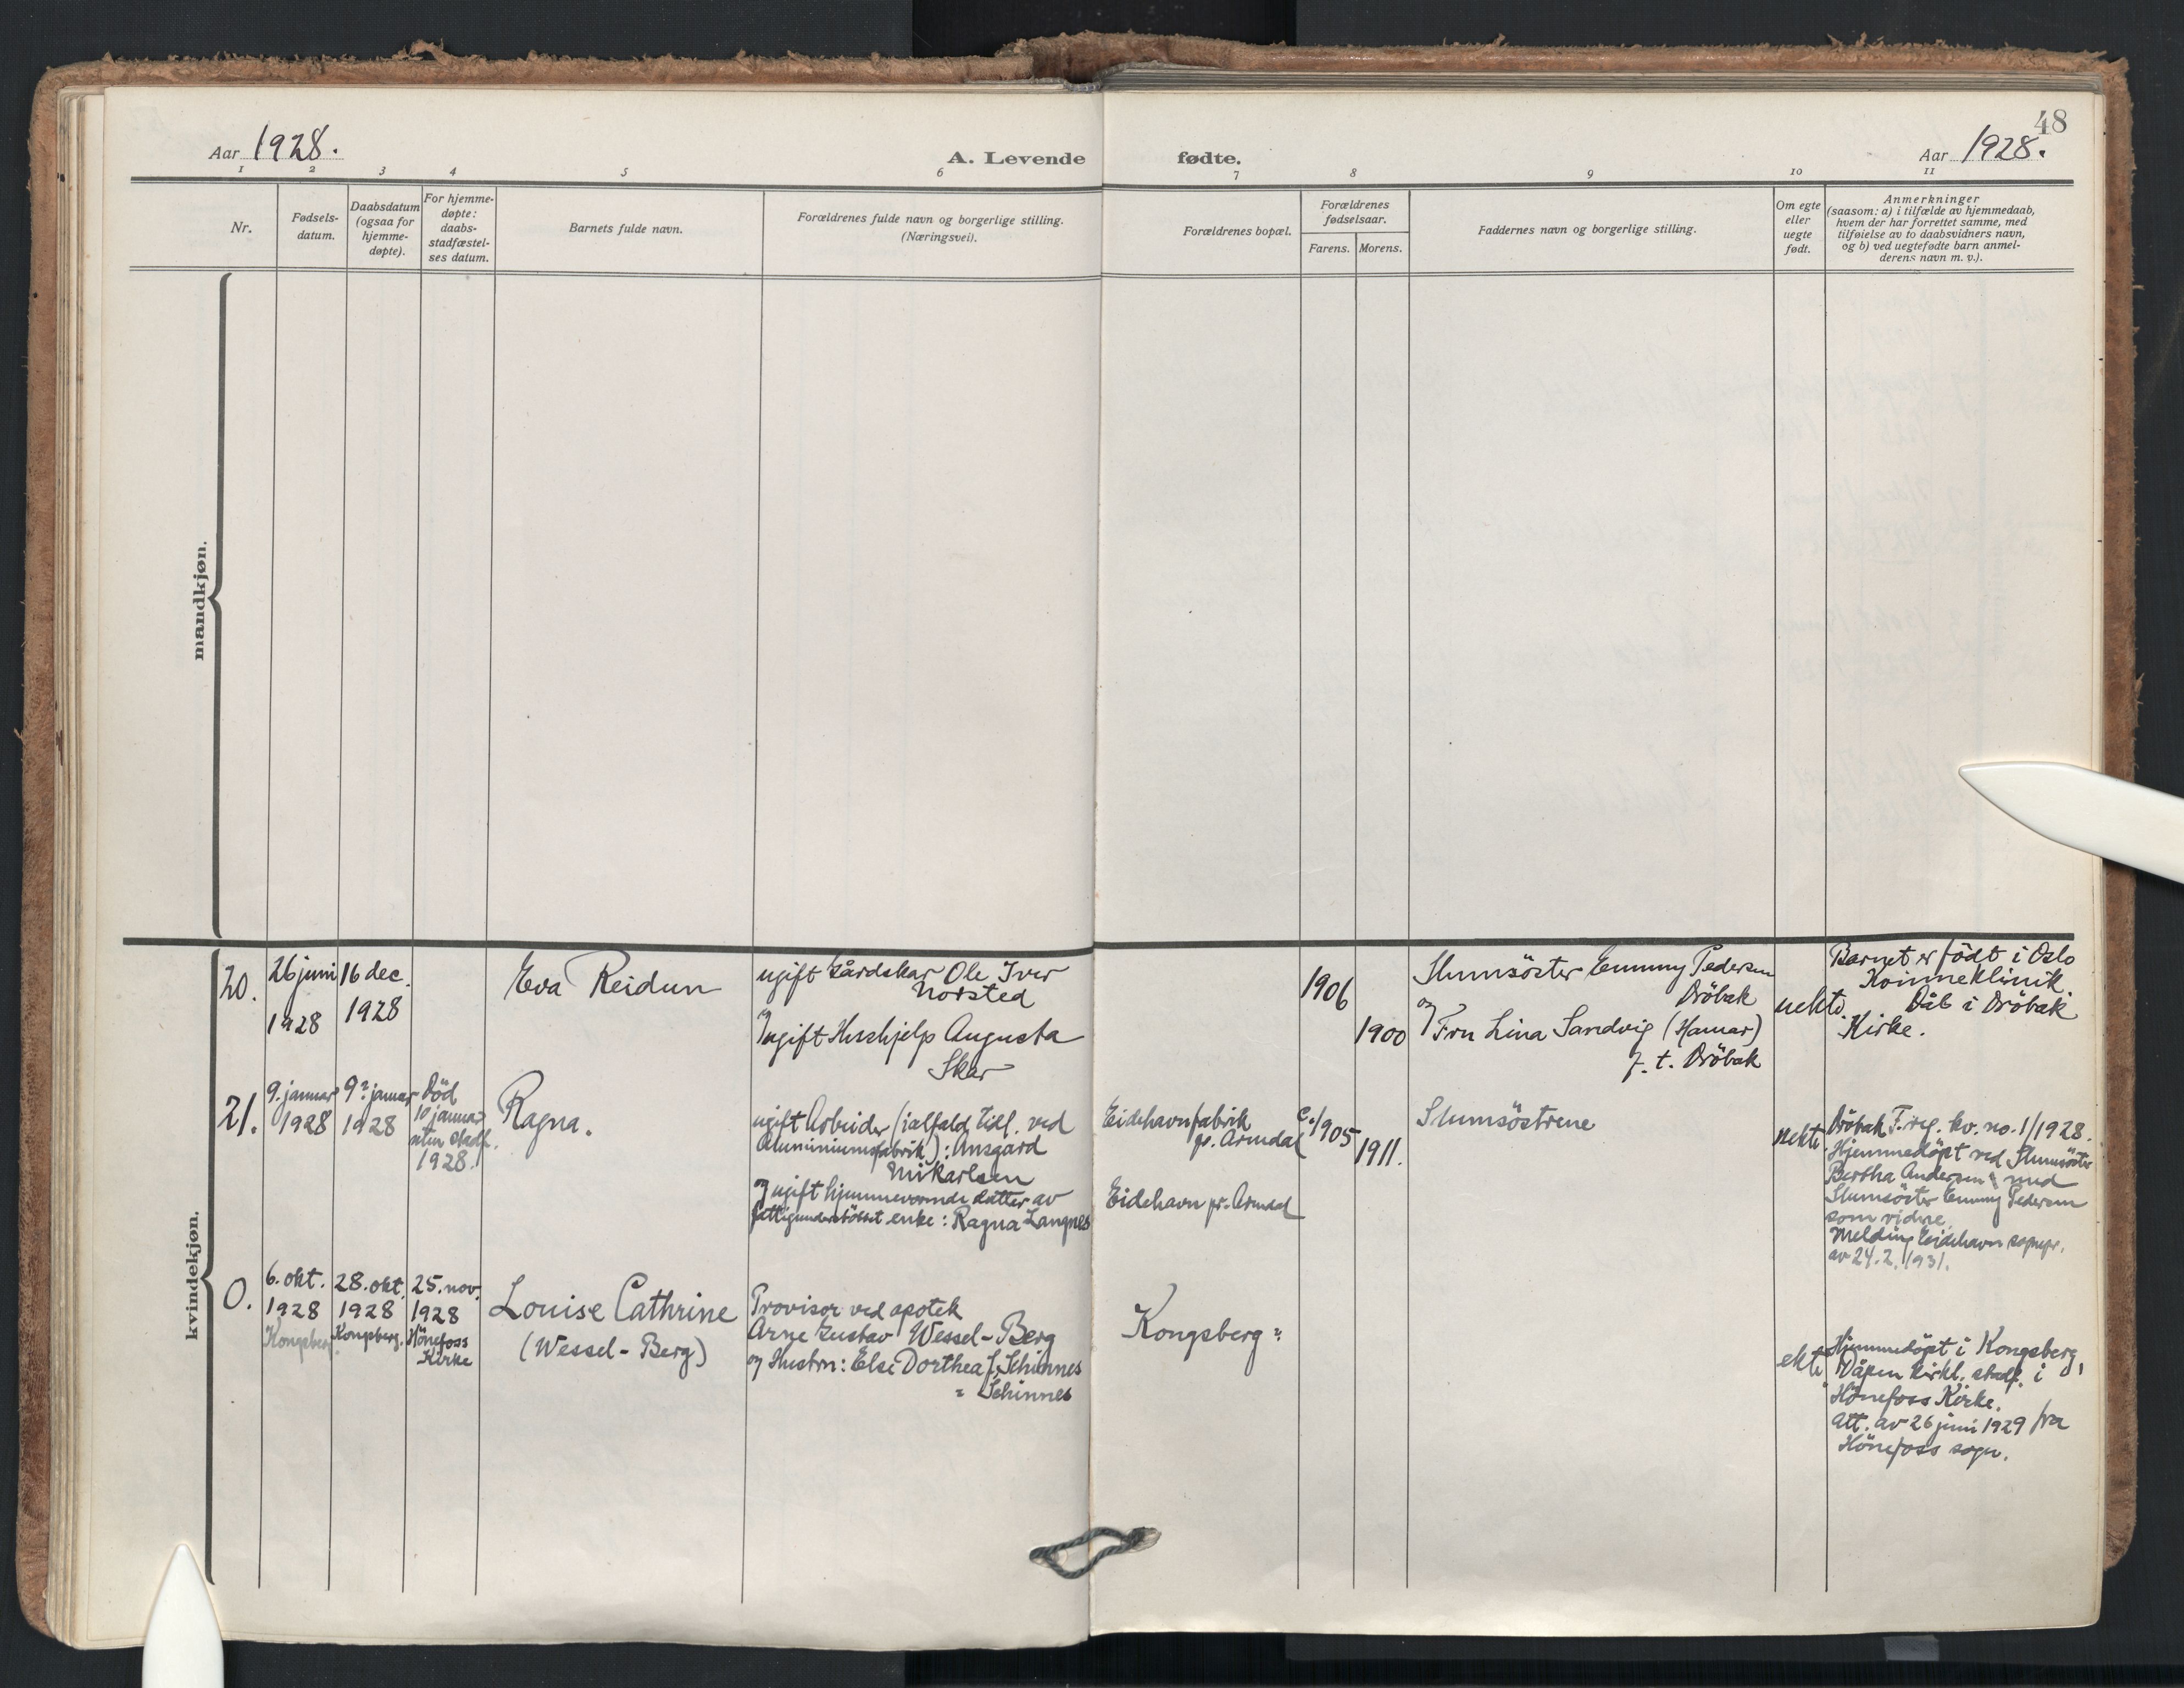 48
Aar 1928.
A. Levende fødte.
Aar 1928.
1 2 3 4 5 6 7 8 9 10 11
Nr.
Fødsels-
datum.
Daabsdatum
(ogsaa for
hjemme-
døpte).
For hjemme-
døpte:
daabs-
stadfæstel-
ses datum.
Barnets fulde navn.
Forældrenes fulde navn og borgerlige stilling.
(Næringsvei).
Forældrenes bopæl.
Forældrenes
fødselsaar.
Farens. Morens.
Faddernes navn og borgerlige stilling.
Om egte
eller
uegte
født.
Anmerkninger
(saasom: a) i tilfælde av hjemmedaab,
hvem der har forrettet samme, med
tilføielse av to daabsvidners navn,
og b) ved uegtefødte barn anmel-
derens navn m. v.).
mandkjøn.
kvindekjøn.
20.
26 juni
1928
16 dec.
1928
Eva Reidun
ugift Gårdskar Ole Iver
Norsted
og
ugift Hushjelp Augusta
Skar
1906
1900
Slumsöster Emmy Pedersen
Dröbak
og
Fru Lina Sandvig (Hamar)
p. t. Dröbak
uekte
Barnet er födt i Oslo
Kvinneklinik.
Dåb i Dröbak
Kirke.
21.
9. januar
1928
9. januar
1928
Död
10 januar
uten stadf.
1928.
Ragna.
ugift Arbeider (ialfald tidl. ved
Aluminiumsfabrik): Ansgard
Mikarlsen
og ugift hjemmeværende datter av
fattigunderstöttet enke: Ragna Langnes
Eidehavnfabrik
pr. Arendal
Eidehavn pr. Arendal
c. 1905
1911.
Slumsöstrene
uekte
Dröbak F. reg. kv. no. 1/1928.
Hjemmedöpt ved Slumsöster
Bertha Andersen med
Slumsöster Emmy Pedersen
som vidne.
Melding Eidehavn sognepr.
av 24. 2. 1931.
0.
6. okt.
1928
Kongsberg.
28. okt.
1928
Kongsberg.
25. nov.
1928
Hönefoss
Kirke
Louise Cathrine
(Wessel-Berg)
Provisor ved apotek
Arne Gustav Wessel-Berg
og Hustru: Else Dorthea f. Schinnes
= Schinnes
Kongsberg =
ekte
Hjemmedöpt i Kongsberg,
Dåpen kirkl. stadf. i
Hönefoss Kirke.
Att. av 26 juni 1929 fra
Hönefoss sogn.